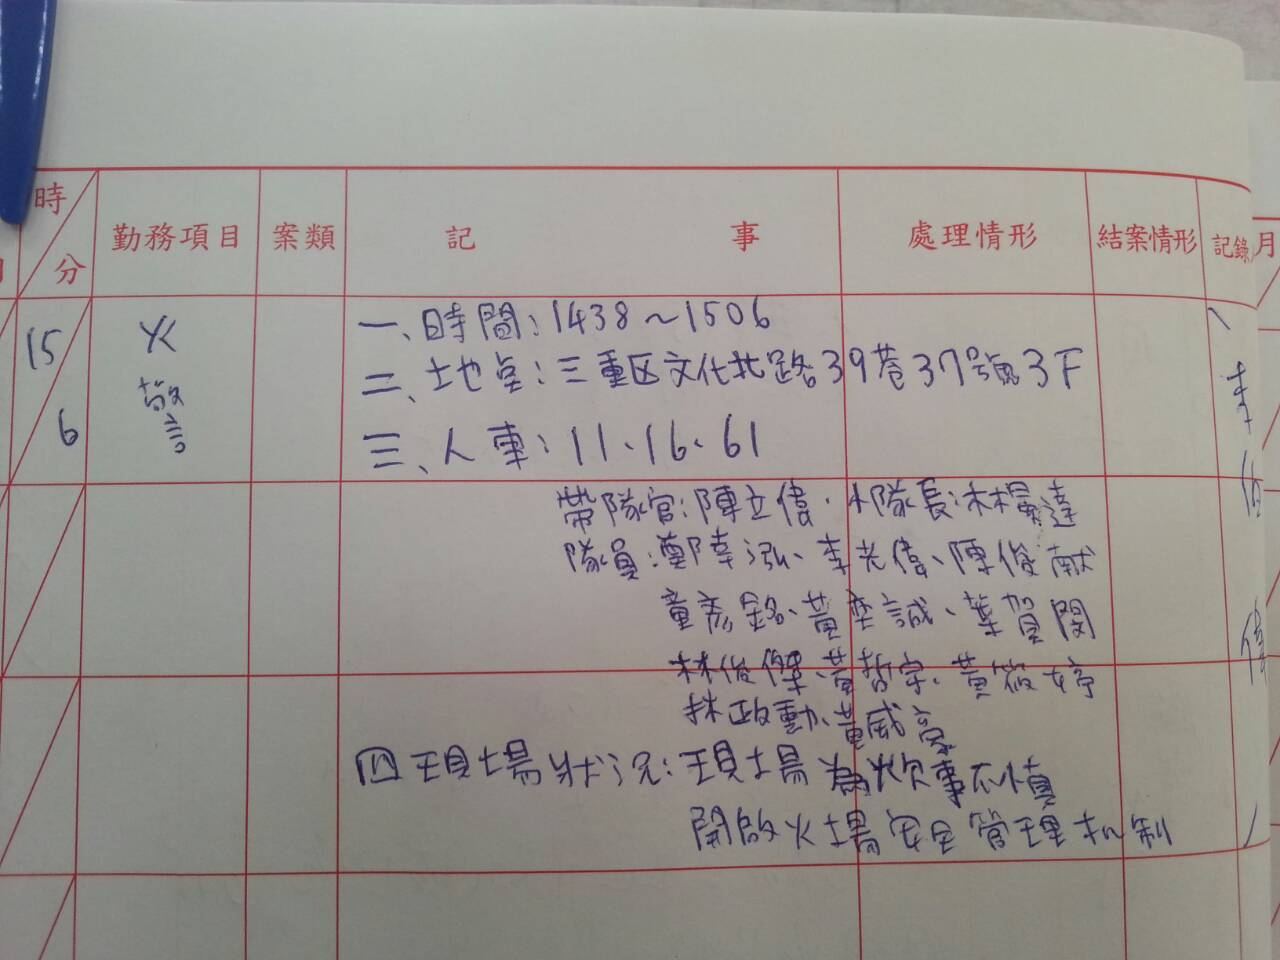 時 分 勤務項目 案類 記 事 處理情形 結案情形 記錄 月
15 6 火警
一、時間:1438~1506
二、地点:三重区文化北路39巷37號3F
三、人車:11、16、61
帶隊官:陳立偉、小隊長:林楊達
隊員:鄭陸泓、李光偉、陳俊献
童彥銘、黃丕誠、葉賀閔
林俊傑、黃哲宗、黃筱婷
林政勳、黃威豪
四現場狀況:現場為炊事不慎
開啟火場安全管理机制
李 偉